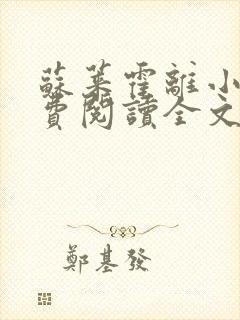 蘇萊霍離小
費閱讀全文
鄭基發